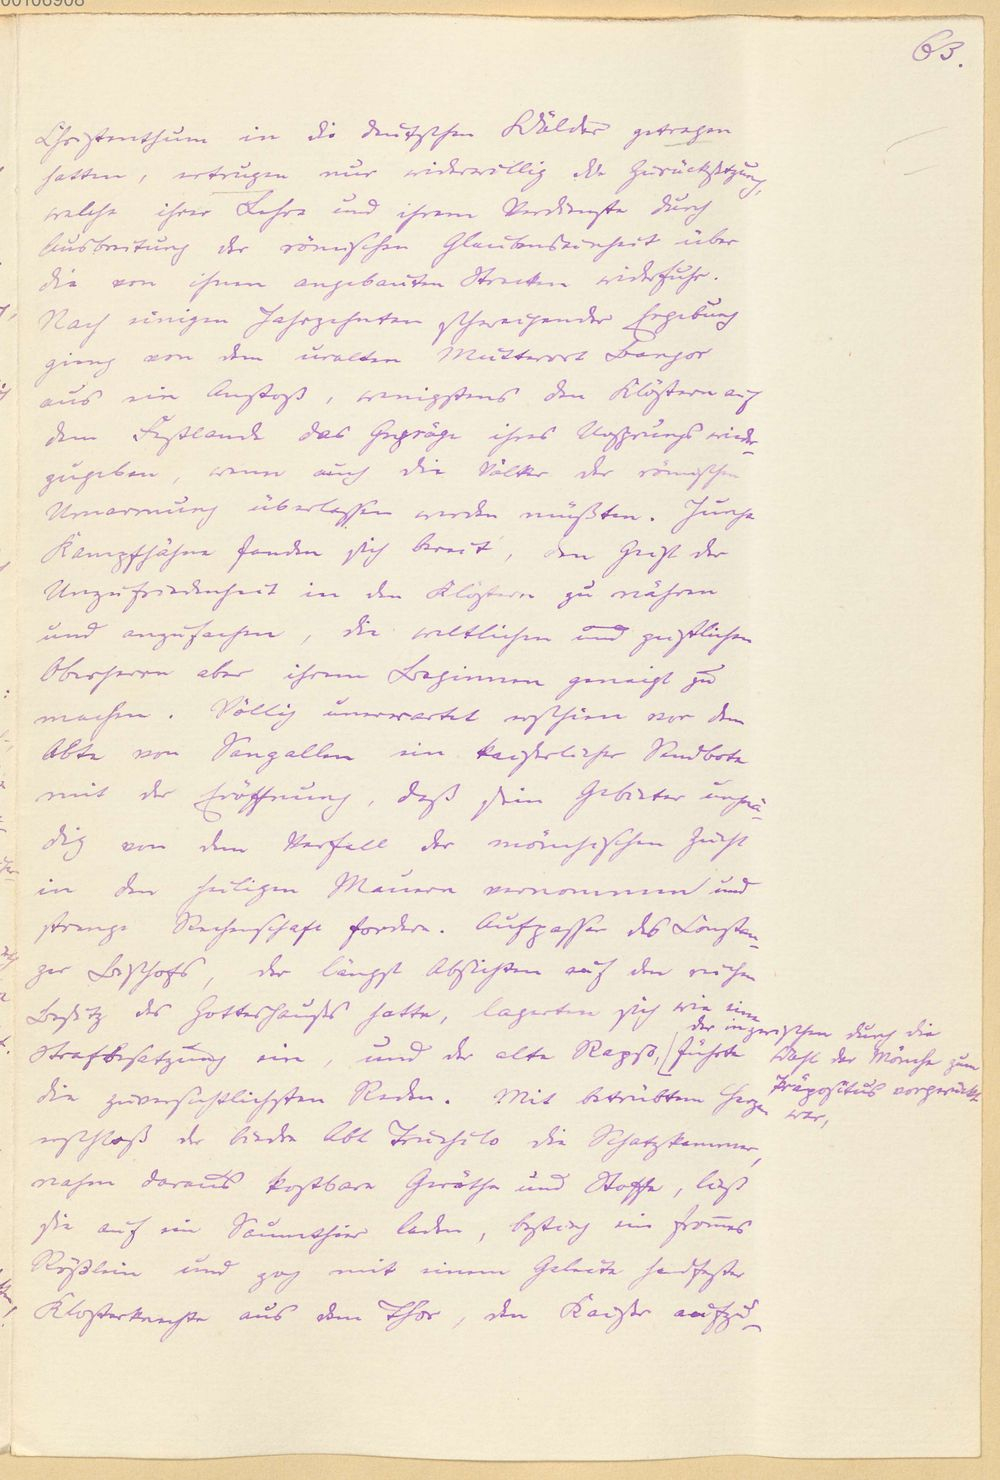 00106908
63.
Christenthum in die deutschen Wälder getragen
hatten, ertrugen nur widerwillig die Zurücksetzung,
welche ihrer Lehre und ihrem Verdienste durch
Ausbreitung der römischen Glaubenseinheit über
die von ihnen angebauten Strecken widerfuhr.
Nach einigen Jahrzehnten schweigender Ergebung
gieng von dem uralten Mutterort Bangor
aus ein Anstoß, wenigstens den Klöstern auf
dem Festlande das Gepräge ihres Ursprungs wieder-
zugeben, wenn auch die Völker der römischen
Umarmung überlassen werden müßten. Junge
Kampfhähne fanden sich bereit, den Geist der
Unzufriedenheit in den Klöstern zu nähren
und anzufachen, die weltlichen und geistlichen
Oberherrn aber ihrem Beginnen geneigt zu
machen. Völlig unerwartet erschien vor dem
Abte von Sangallen ein kaiserlicher Sendbote
mit der Eröffnung, daß sein Gebieter ungnä-
dig von dem Verfall der mönchischen Zucht
in den heiligen Mauern vernommen und
strenge Rechenschaft fordere. Aufpasser des Constan-
zer Bischofs, der längst Absichten auf den reichen
Besitz des Gotteshauses hatte, lagerten sich wie eine
Strafbesatzung ein, und der alte Rapso, [der inzwischen durch die
Wahl der Mönche zum
Präpositus vorgerückt
war, führte
die zuversichtlichsten Reden. Mit betrübtem Herzen
erschloß der biedre Abt die Schatzkammer,
nahm daraus kostbare Geräthe und Stoffe, ließ
sie auf ein Saumthier laden, bestieg ein frommes
Rößlein und zog mit einem Geleite handfester
Klosterknechte aus dem Thor, den Kaiser aufzu-